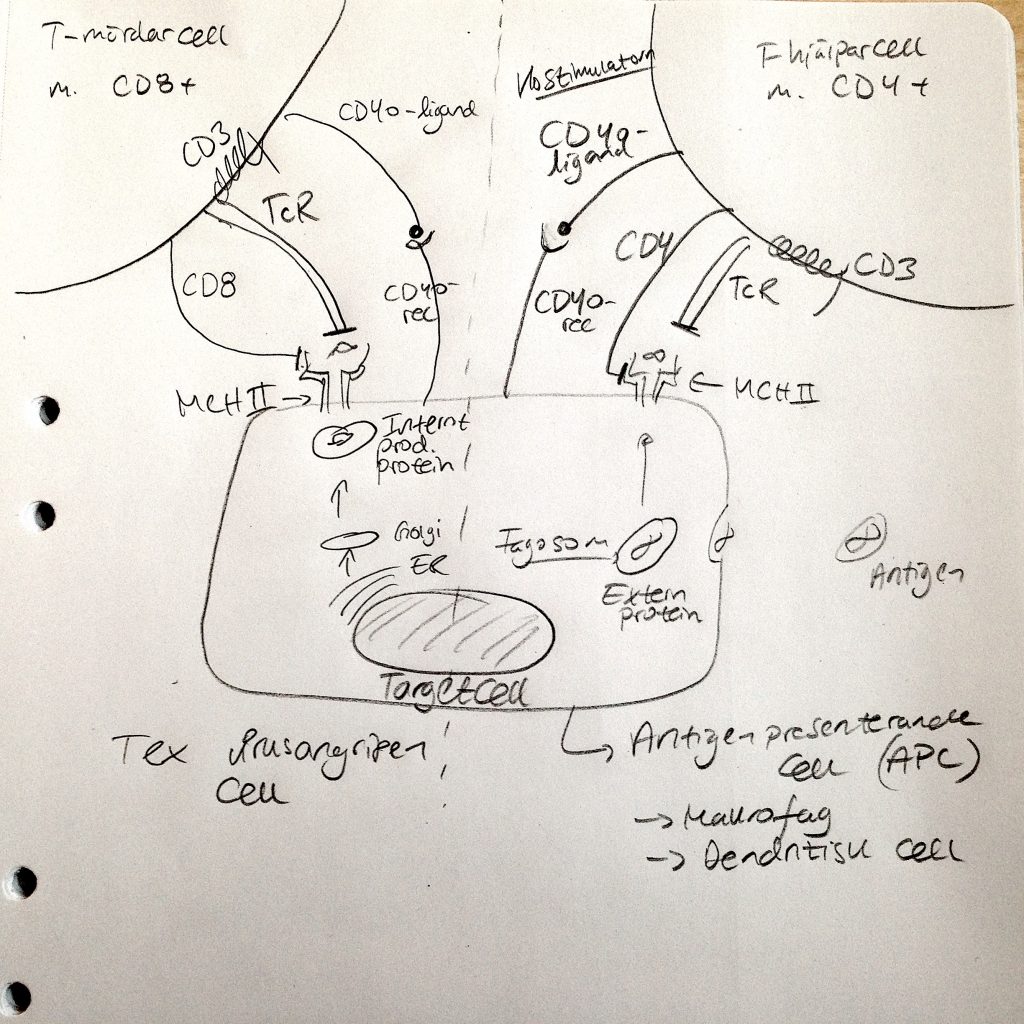 T-mördarcell
m. CD8+
CD3
TcR
CD8
CD40-ligand
CD40-
rec
MCH II →
Kostimulatorn
T-hjälparcell
m. CD4+
CD40-
ligand
CD4
CD40-
rec
TcR
CD3
← MCH II
Internt
prod.
protein
Golgi
ER
Fagosom
Extern
protein
Antigen
Targetcell
Tex Virusangripen
Cell
Antigenpresenterande
Cell (APC)
→ Makrofag
→ Dendritisk cell